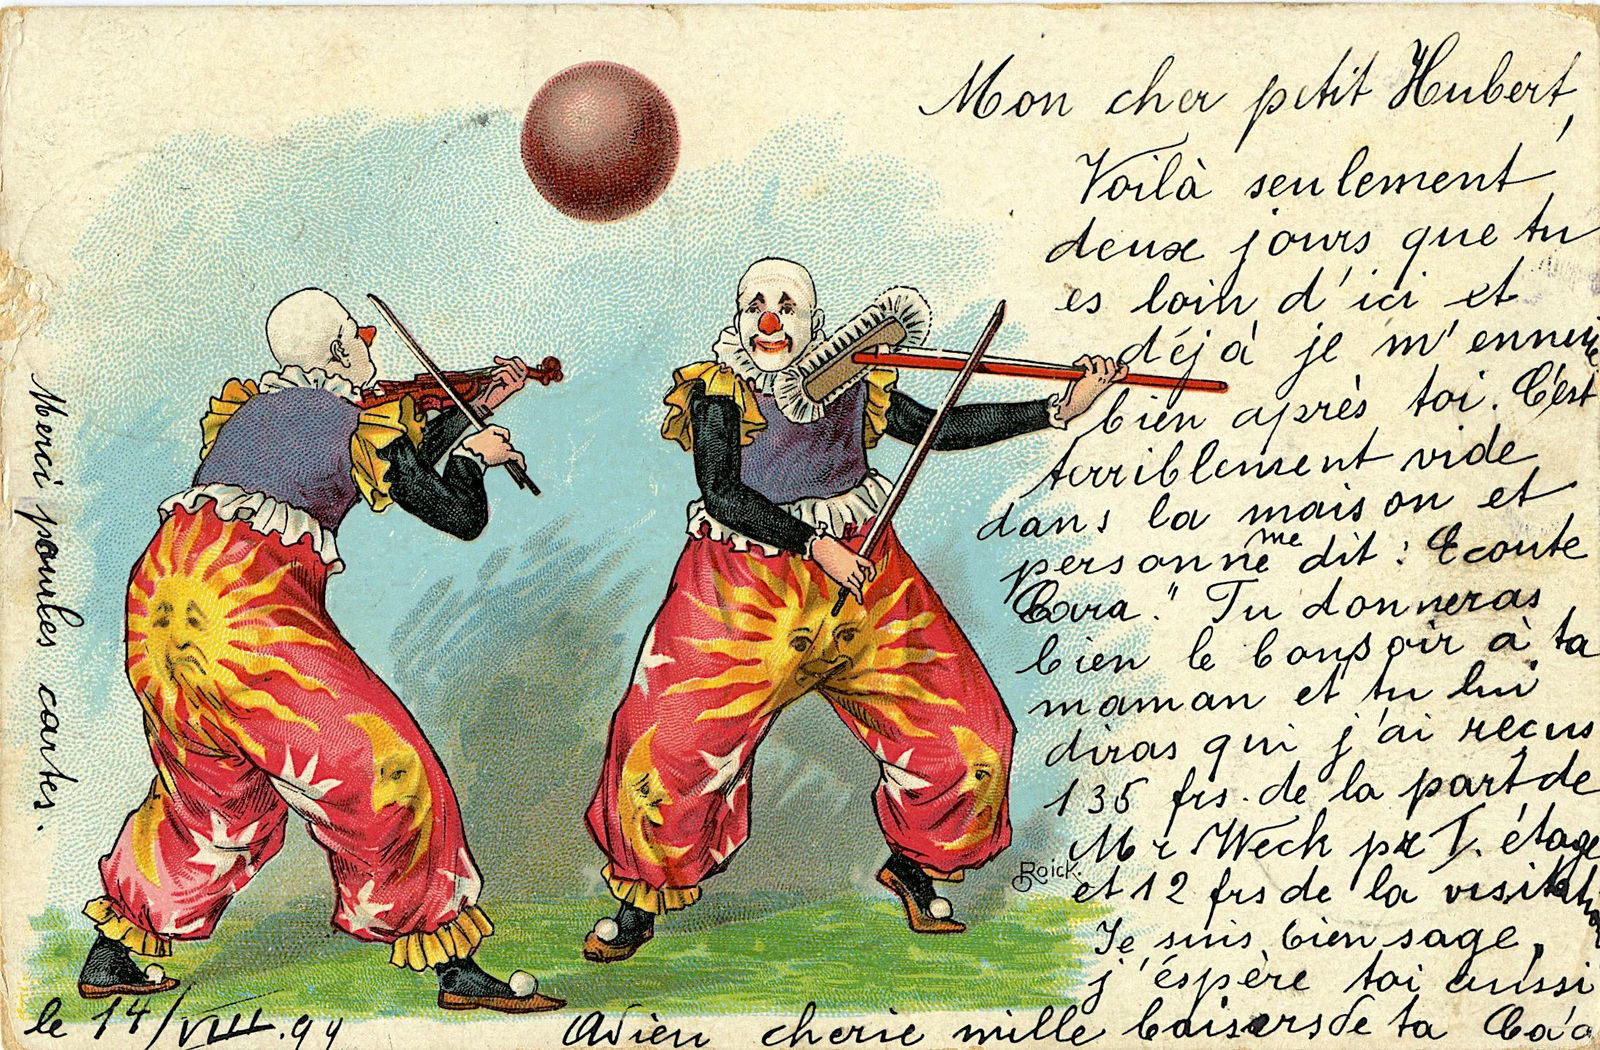 Mon cher petit Hubert,
Voilà seulement
deux jours que tu
es loin d'ici et
déjà je m'ennuie
bien après toi. C'est
terriblement vide
dans la maison et
personne me dit : "Ecoute
Cara." Tu donneras
bien le bonsoir à ta
maman et tu lui
diras qui j'ai recus
135 frs. de la part de
Mr Weck pr I. étage
et 12 frs de la visitation
Je suis bien sage,
j'éspère toi aussi
Adieu cherie mille baisers de ta
Merci pour les cartes.
le 14/VIII.99
Roick.